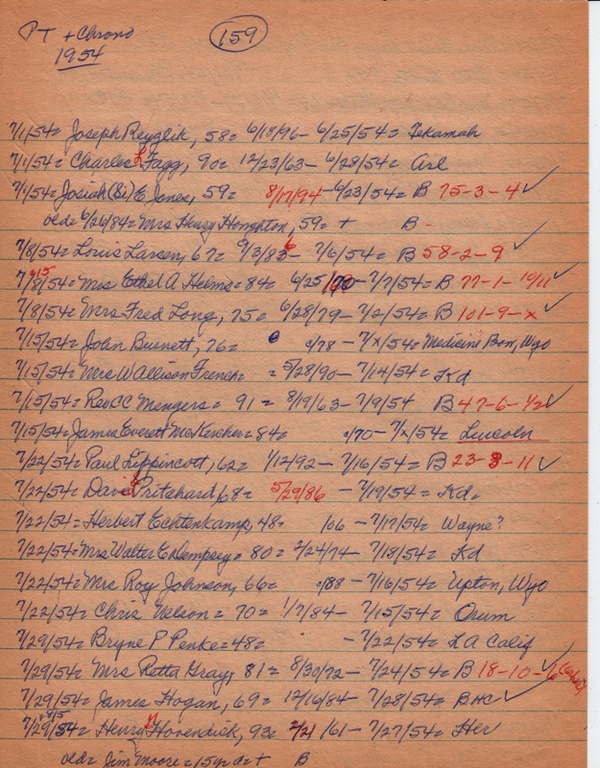 PT + Chrono
159
1954
7/1/54= Joseph Reyzlik, 58= 6/19/96- 6/25/54= Tekamah
7/1/54= Charles L Fagg, 90= 12/23/63- 6/28/54= Arl
7/1/54= Josiah (Si) E Jones, 59= 8/17/94- 6/23/54= B 75-3-4 ✓
old= 6/26/84= Mrs Henry Honghton, 59= + B -
7/8/54= Louis Larsen, 67= 9/3/86- 7/6/54= B 58-2-9 ✓
7/8/54= Mrs Ethel A Helms= 84= 6/25/70- 7/7/54= B 77-1-10/11 ✓
7/8/54= Mrs Fred Long, 75= 6/28/79- 7/2/54= B 101-9-x ✓
7/15/54= John Burnett, 76= /78- 7/x/54= Medicine Bow, Wyo
7/15/54= Mrs W Allison French= = 5/28/90- 7/14/54= Kd
7/15/54= Rev CC Mengers= 91= 8/19/63- 7/9/54 B 47-6-1/2 ✓
7/15/54= James Everett McKercher= 84= /70- 7/x/54= Lincoln
7/22/54= Paul Lippincott, 62= 1/12/92- 7/16/54= B 23-3-11 ✓
7/22/54= David Pritchard, 68= 5/29/86 - 7/19/54= Kd.
7/22/54= Herbert Echtenkamp, 48= /06- 7/17/54= Wayne?
7/22/54= Mrs Walter E Dempsey= 80= 2/24/74- 7/18/54= Kd
7/22/54= Mrs Roy Johnson, 66= /88- 7/16/54= Upton, Wyo
7/22/54= Chris Nelson= 70= 1/7/84- 7/15/54= Orum
7/29/54= Bryne P Penke= 48= - 7/22/54= LA Calif
7/29/54= Mrs Retta Gray, 81= 8/30/72- 7/24/54= B 18-10-6 ✓
7/29/54= James Hogan, 69= 12/16/84- 7/28/54= BHC ✓
7/29/54= Henry H Hovendick, 93= 2/21/61- 7/27/54= Her
old= Jim Moore= 15yr d= + B